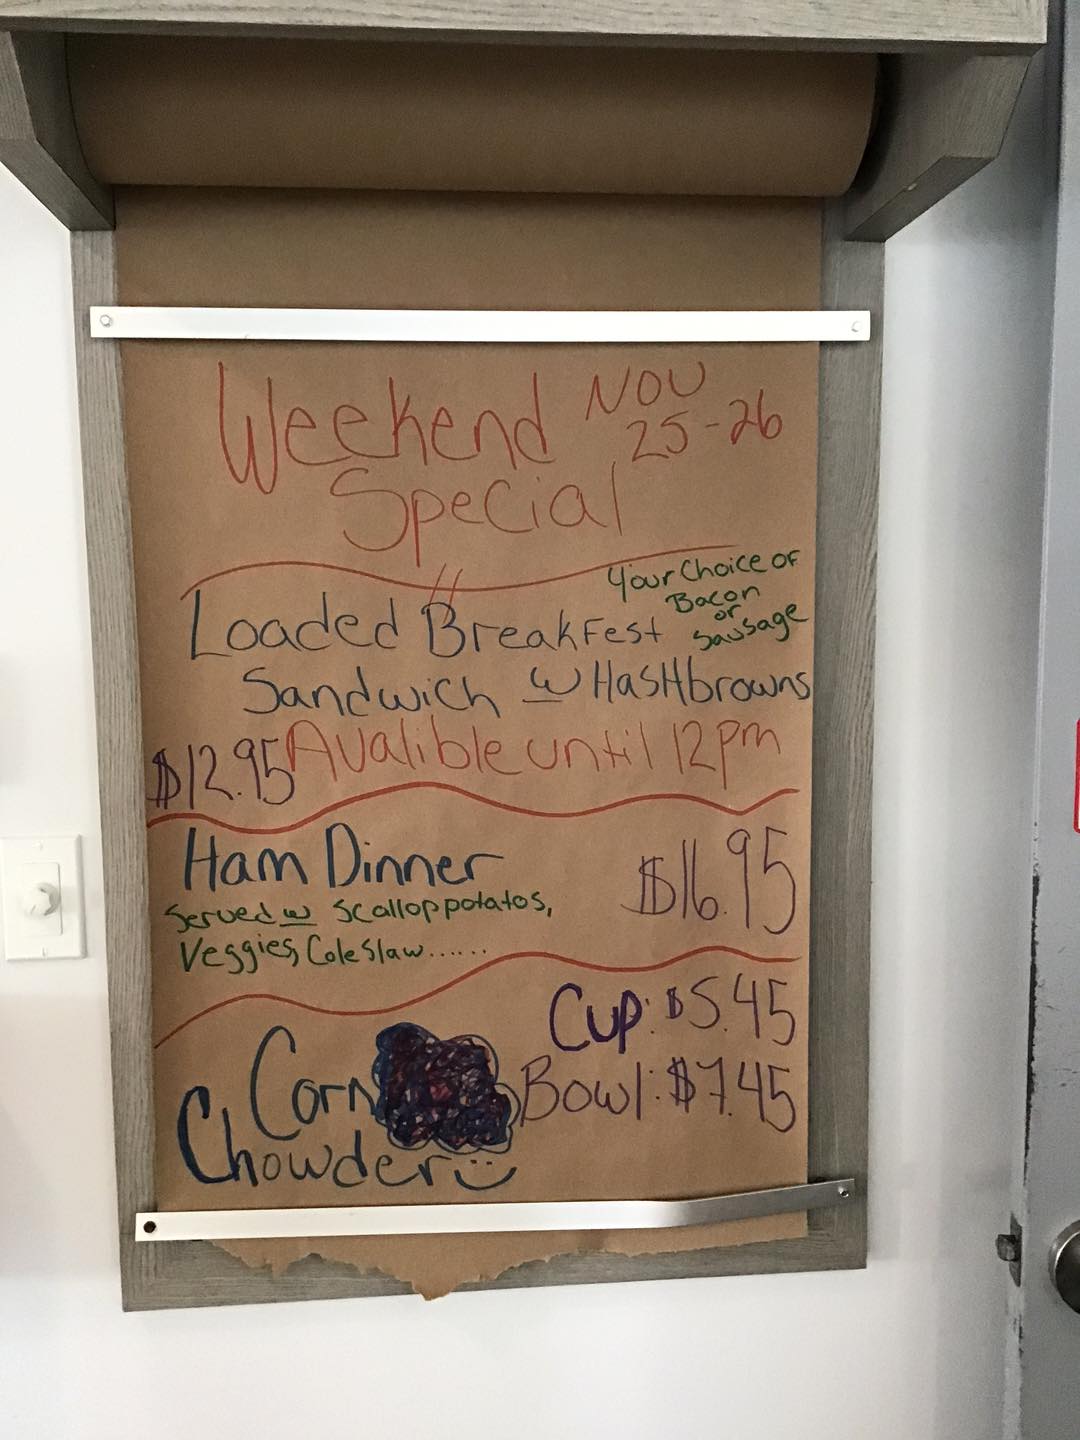 Weekend Nov
25-26
Special
Your Choice of
Bacon
or
Sausage
Loaded Breakfest
Sandwich w Hashbrowns
$12.95 Avalible until 12pm
Ham Dinner $16.95
Served w Scallop potatos,
Veggies, Coleslaw......
Cup: $5.45
Corn Bowl: $7.45
Chowder